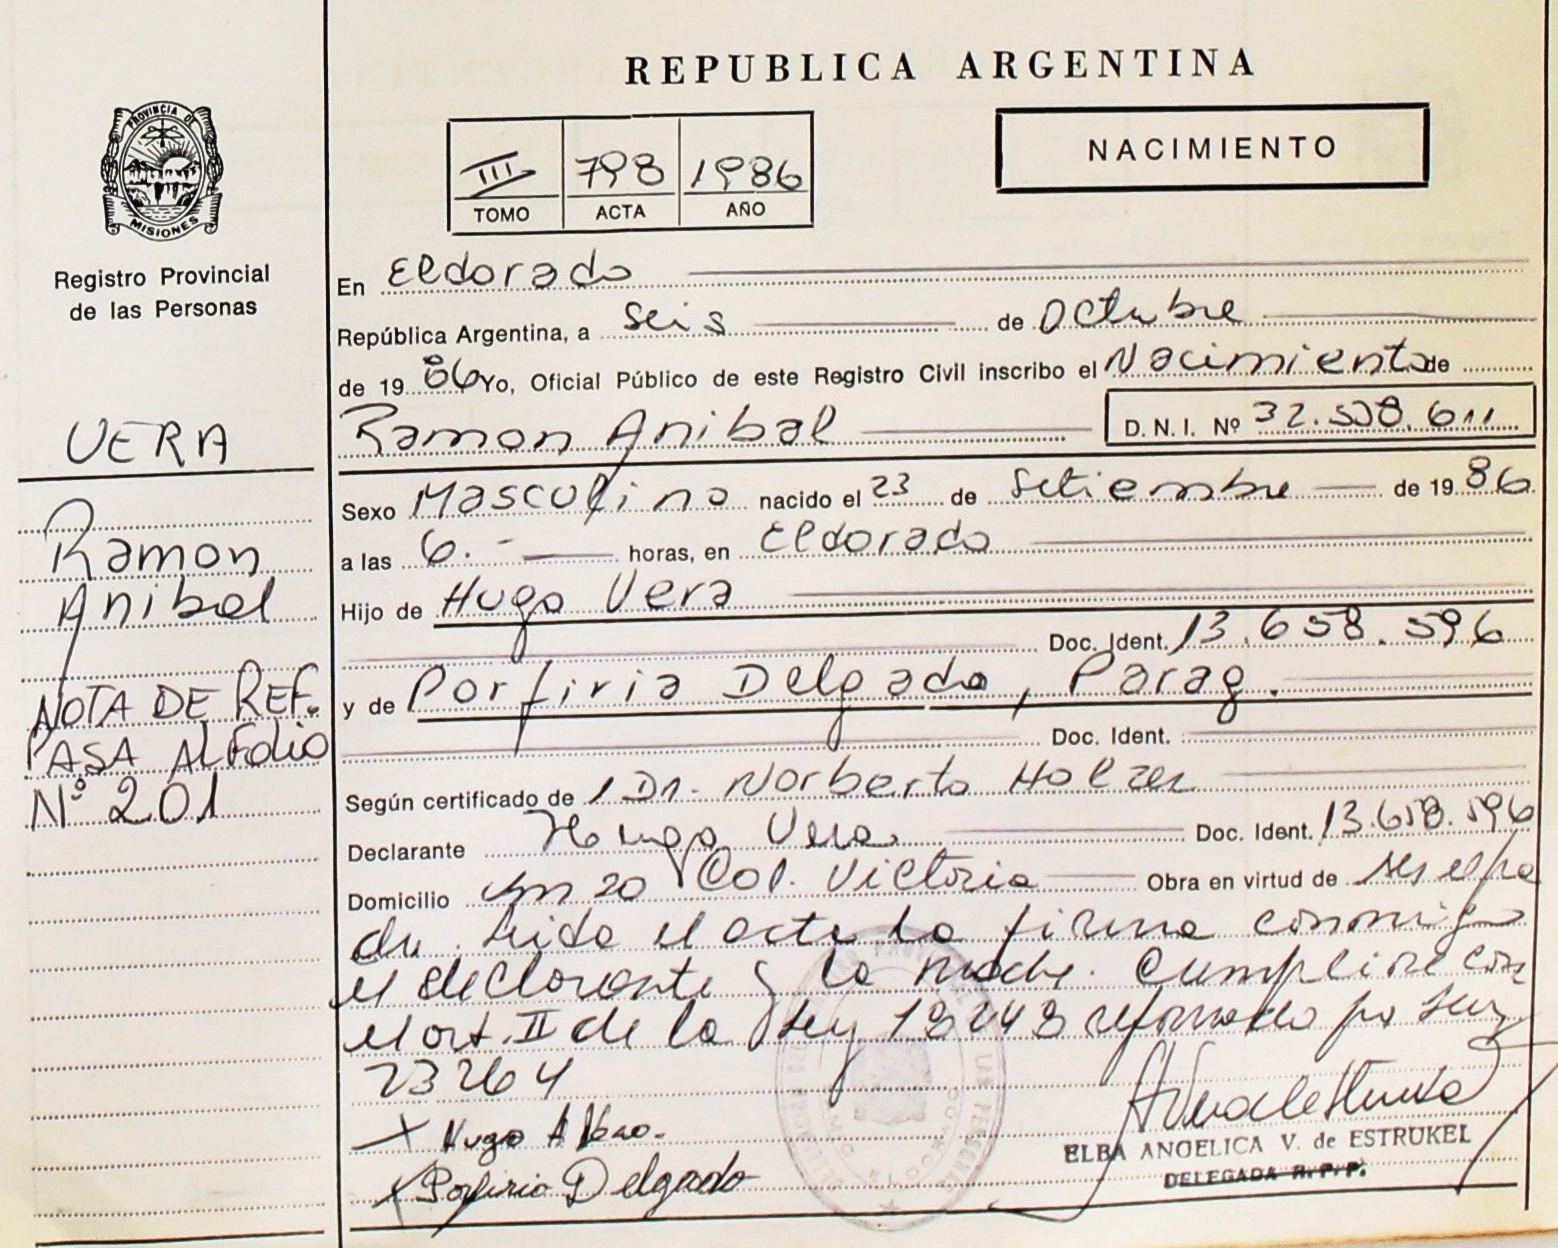 REPUBLICA ARGENTINA
PROVINCIA DE
MISIONES
Registro Provincial
de las Personas
III 798 1986
TOMO ACTA AÑO
NACIMIENTO
En Eldorado
República Argentina, a seis de Octubre
de 19 86 Yo, Oficial Público de este Registro Civil inscribo el Nacimiento de
Ramon Anibal D. N. I. Nº 32.538.611
Sexo Masculino nacido el 23 de Setiembre de 19 86
a las 6.- horas, en Eldorado
Hijo de Hugo Vera
Doc. Ident. 13.658.596
y de Porfiria Delgado, Parag.
Doc. Ident.
Según certificado de Dr. Norberto Holzer
Declarante Hugo Vera Doc. Ident. 13.658.596
Domicilio Km 20 Col. Victoria Obra en virtud de ser el pa
dre. Leida el acta la firma conmigo
el declarante y la madre. Cumpliré con
el art. II de la Ley 18248 reformado por Ley
23264
Hugo A Vera.
Porfiria Delgado
ELBA ANGELICA V. de ESTRUKEL
DELEGADA R.P.P.
VERA
Ramon
Anibal
NOTA DE REF.
PASA AL Folio
Nº 201